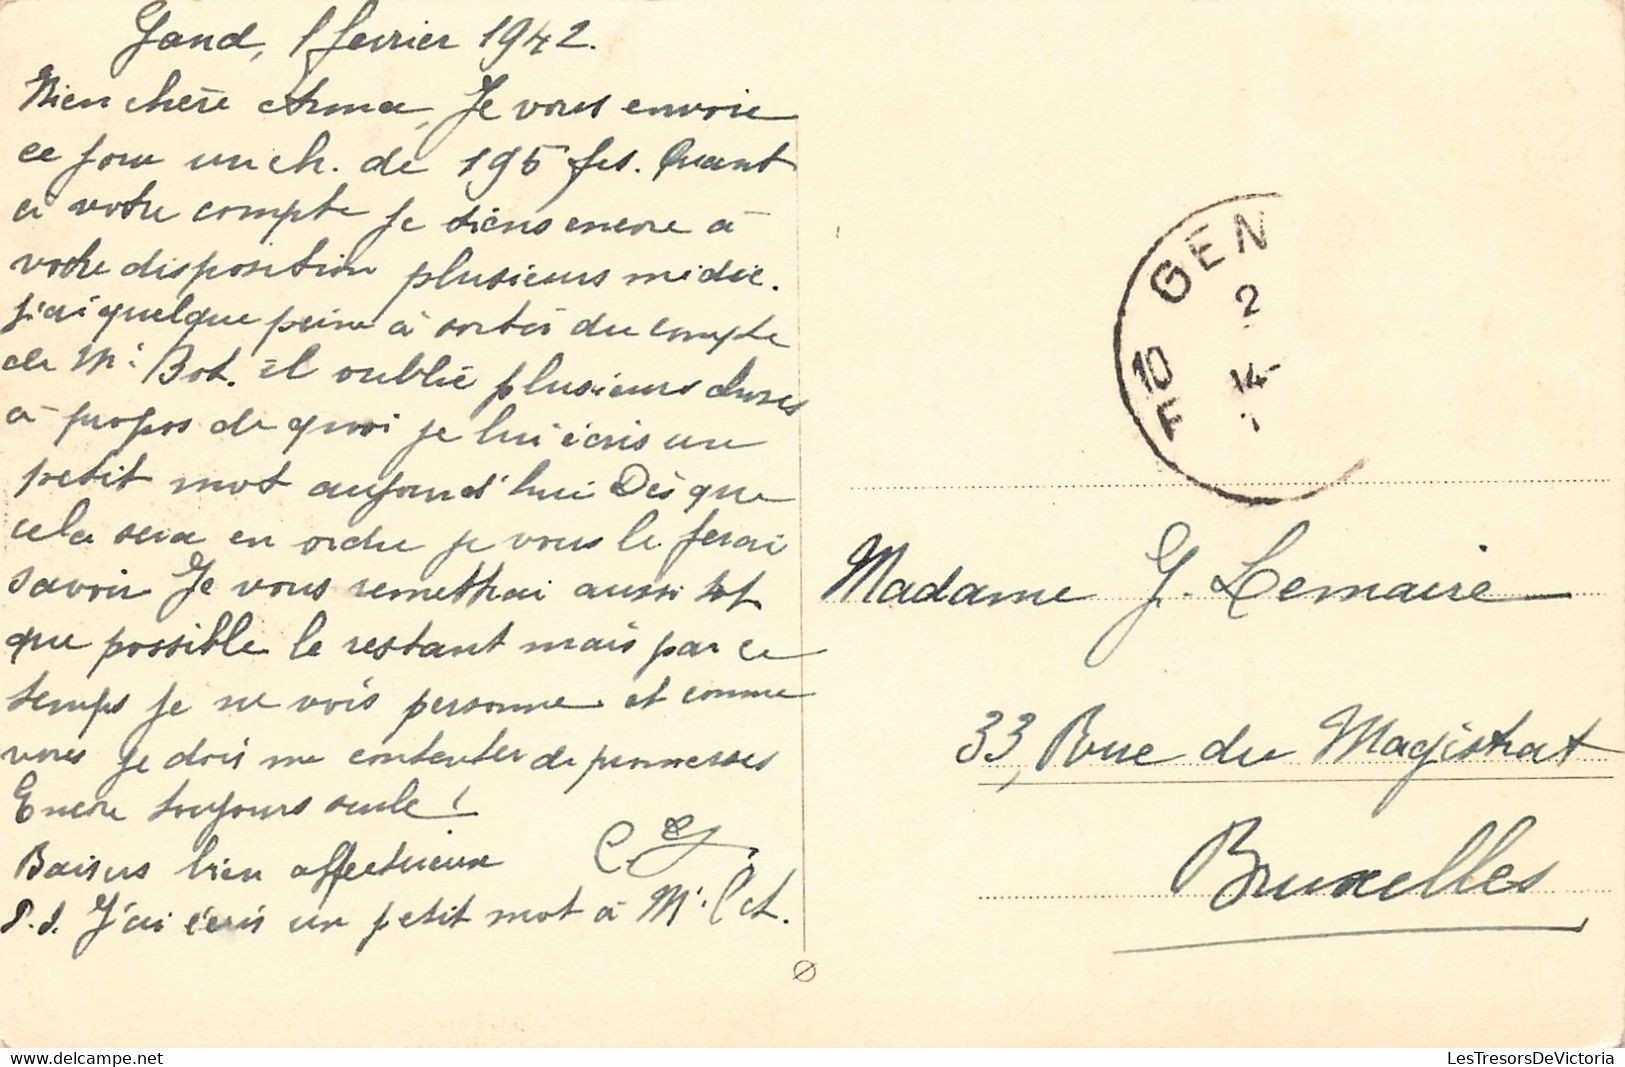 Gand, 1 fevrier 1942.
Bien chère Anna, Je vous envoie
ce jour un ch. de 195 frs. Quant
à votre compte je tiens encore à
votre disposition plusieurs médic.
J'ai quelque peine à sortir du compte
de Mr. Bot. il oublie plusieurs choses
à propos de quoi je lui écris un
petit mot aujourd'hui Dès que
cela sera en ordre je vous le ferai
savoir Je vous remettrai aussi tot
que possible le restant mais par ce
temps je ne vois personne et comme
vous je dois me contenter de promesses
Encore toujours seule!
Baisers bien affectueux
P.S. J'ai écris un petit mot à Mr.
GEN
2
10
14-
Madame G. Lemaire
33, Rue du Magistrat
Bruxelles
delcampe.net
LesTresorsDeVictoria